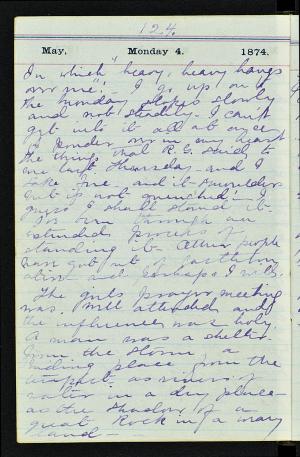 124.
May, Monday 4. 1874.
In which "heavy, heavy hangs
over me" - I go up on
the Monday steps slowly
and not steadily - I can't
get into it all at once
I ponder over in my heart
the things that said to
me last Thursday - and I
take fire and it
but if not quenched I
guess I shall stand it
to through an
extended process of
standing it - Other people
have got out of
and perhaps I will.
The girls prayer meeting
was well attended and
the influence was holy.
A man was a shelter
from the storm a
hiding place from the
tempest: as rivers of
water in a dry place -
as the shadow of a
great Rock in a weary
land -